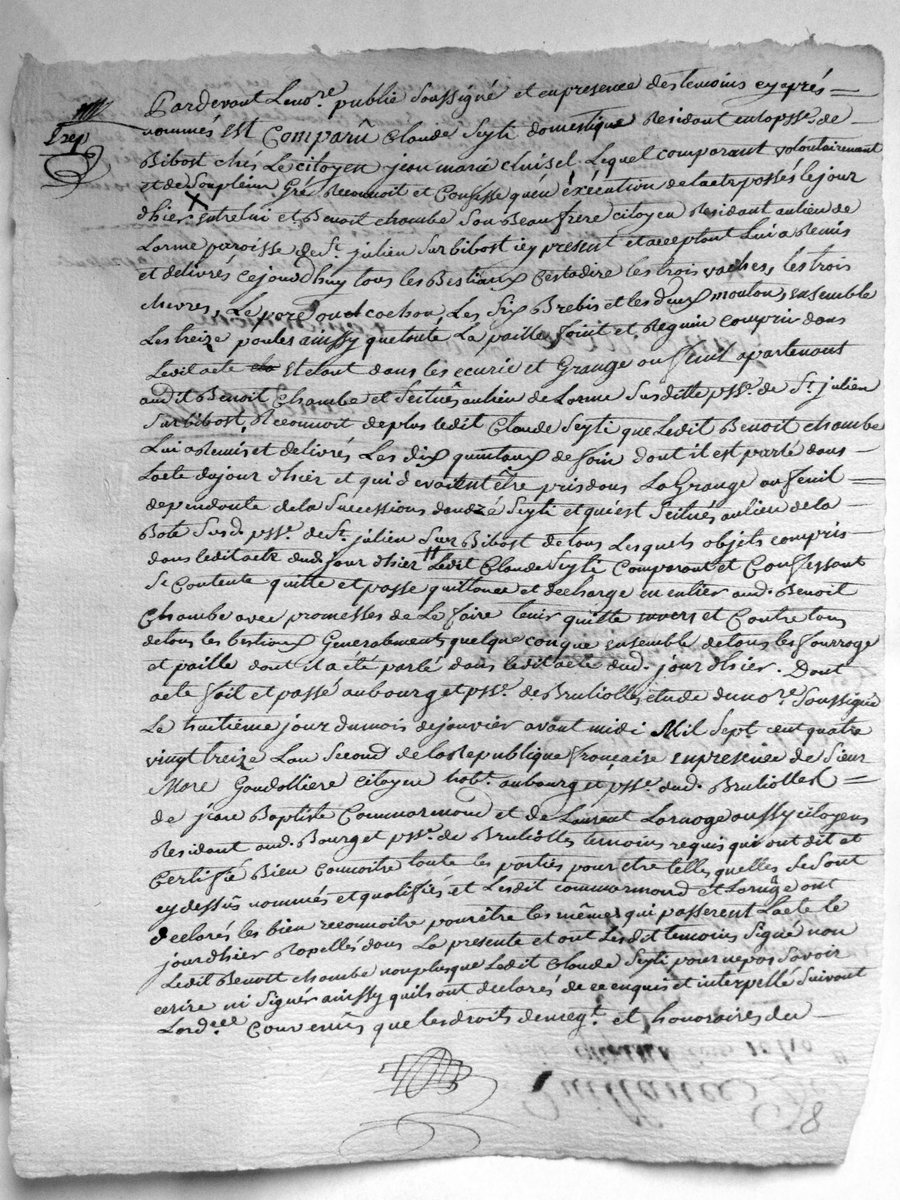 Pardevant Lenore. publie Soussigné et enpresence destemoins cy après =
nommés est Comparû Claude Seyti domestique Residant enlapsse. de —
Bibost chés Le citoyen jean marie cluisel. Lequel comparant volontairement
et de Son plein Gré Reconnoit et Confesse qu'en éxécution de lacte passés le jour
dhier entre lui et Benoit chambe Son Beau frère citoyen Residant aulieu de
Larme paroisse de St. julien Sur bibost icy present et acceptant Lui a Remis
et délivrés cejourdhuy tous les Bestiaux Cestadire les trois vaches, les trois
chevres, Le porc ou cochon, Les Six Brebis et les deux moutons, ensemble
Les treize poules ainssy que toute La paille, foint et Reguin compris dans
Ledit acte Etetant dans les ecurie et Grange ou feuil apartenant
audit Benoit Chambe et Scitués aulieu de Larme Susditte psse. de St. julien
Sur bibost, Reconnoit deplus ledit Claude Seyti que Ledit Benoit chambe
Lui a Remis et délivrés Les dix quintaux de foin dont il est parlé dans —
Lacte dujour dhier et qui devoitent être pris dans La Grange ou feuil =
dependante de la Successions dandré Seyti et qui est Scitués aulieu de la
Bote Susd. psse. de St. julien Sur Bibost de tous Lesquels objets compris —
dans leditacte dud. jour dhier Ledit Claude Seyti Comparant et Confessant
Se Contente quitte et passe quittance et décharge en entier aud. Benoit
Chambe avec promesses de Le faire tenir quitte envers et Contre tous
detous les bestiaux Generalements quelque conque ensemble de tous les fourrage
et paille dont il a été parlé dans ledit acte dud. jour dhier. Dont
acte fait et passé au bourg et psse. de Brulliolles, etude dunore. Soussigné
Le huitième jour dumois dejanvier avant midi Mil Sept cent quatre
vingt treize Lan Second de la Republique française enpresence de Sieur
Marc Gaudolliere citoyen habt. aubourg et psse. dud. Brulliolles =
de jean Baptiste Commarmond et de Laurent Laroge aussy citoyens
Residant aud. Bourg et psse. de Brulliolles temoins requis qui ont dit et
Certifié Bien Connoitre toute les parties pour être telles quelles Se Sont
cy dessus nommés et qualifiés et Lesdit commarmond et Laroge ont
declarés les bien reconnoitre pour être les mêmes qui passerent Lacte le
jourdhier Rapellés dans La presente et ont Lesdit temoins Signé non
Ledit Benoit chambe non plus que Ledit Claude Seyti pour ne pas Savoir
ecrire ni Signér ainssy quils ont déclarés de ce enquis et interpellé Suivant
Lordce. Convenûs que les droits denregt. et honoraires du —